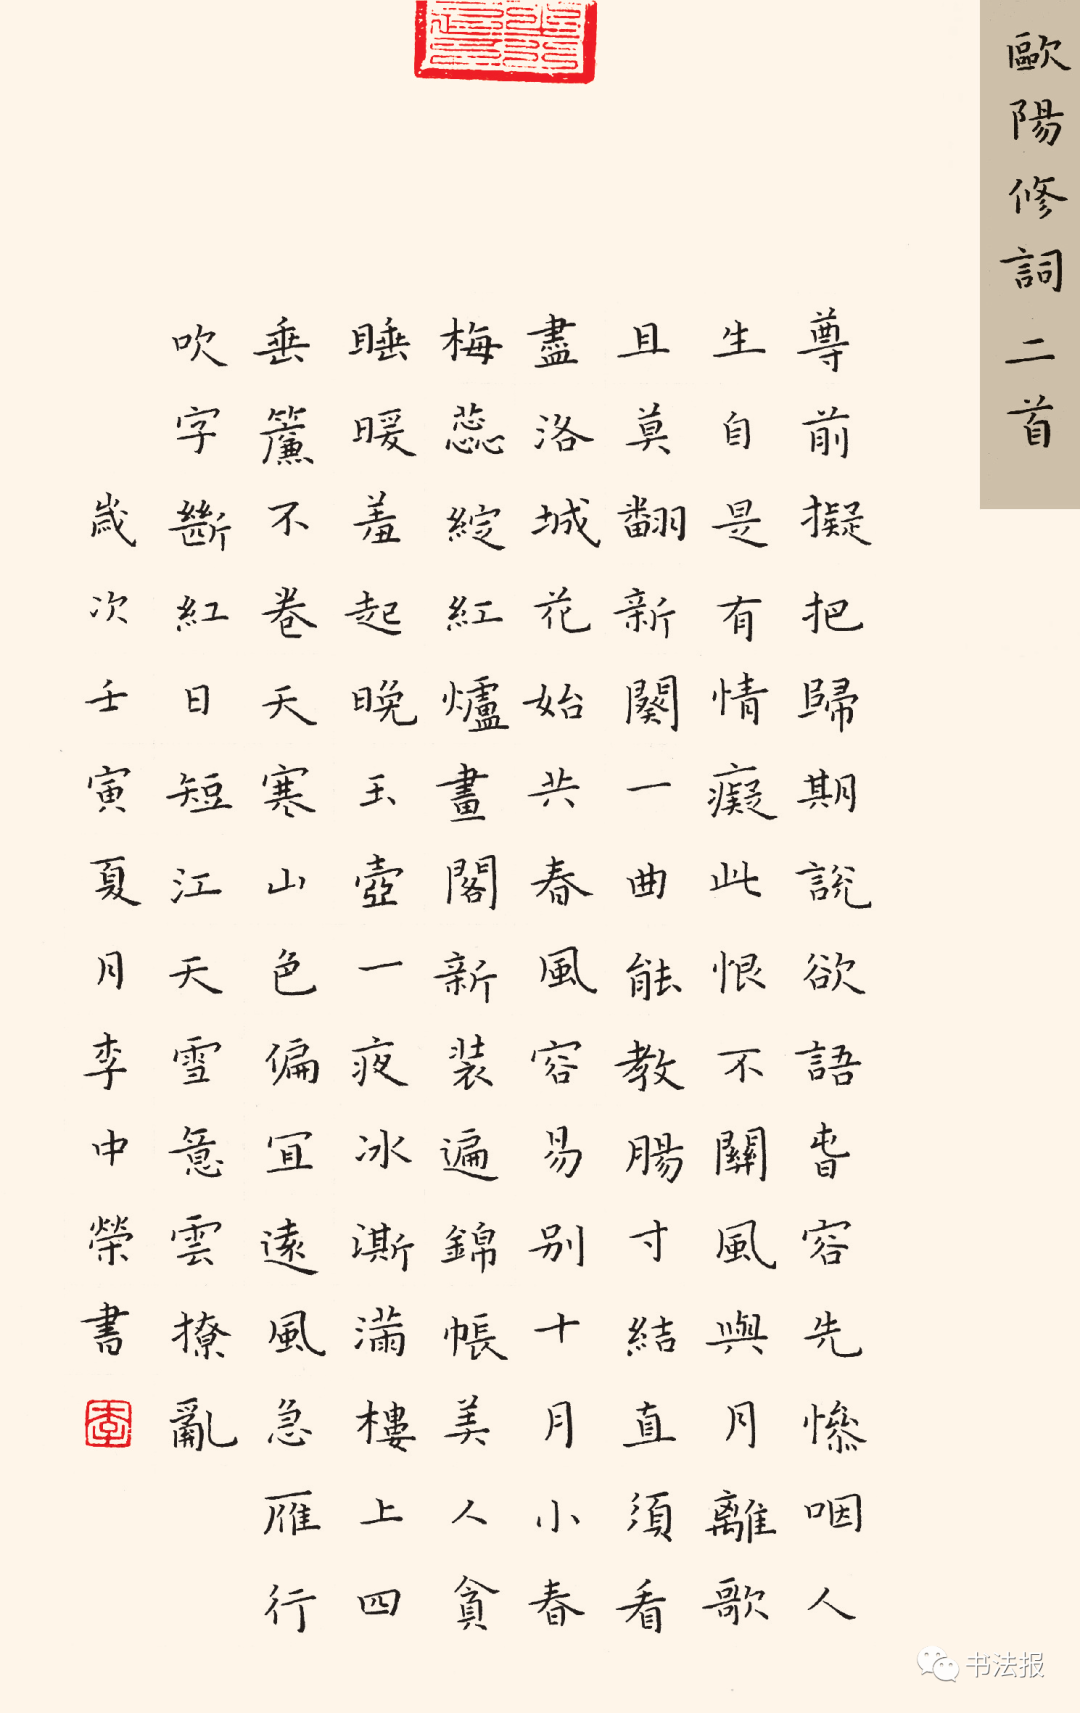 歐陽修詞二首
尊前擬把歸期說欲語旾容先慘咽人
生自是有情癡此恨不關風與月離歌
且莫翻新闋一曲能教腸寸結直須看
盡洛城花始共春風容易別十月小春
梅蕊綻紅爐畫閣新裝遍錦帳美人貪
睡暖羞起晚玉壺一夜冰澌滿樓上四
垂簾不卷天寒山色偏宜遠風急雁行
吹字斷紅日短江天雪意雲撩亂
歲次壬寅夏月李中榮書
李
书法报